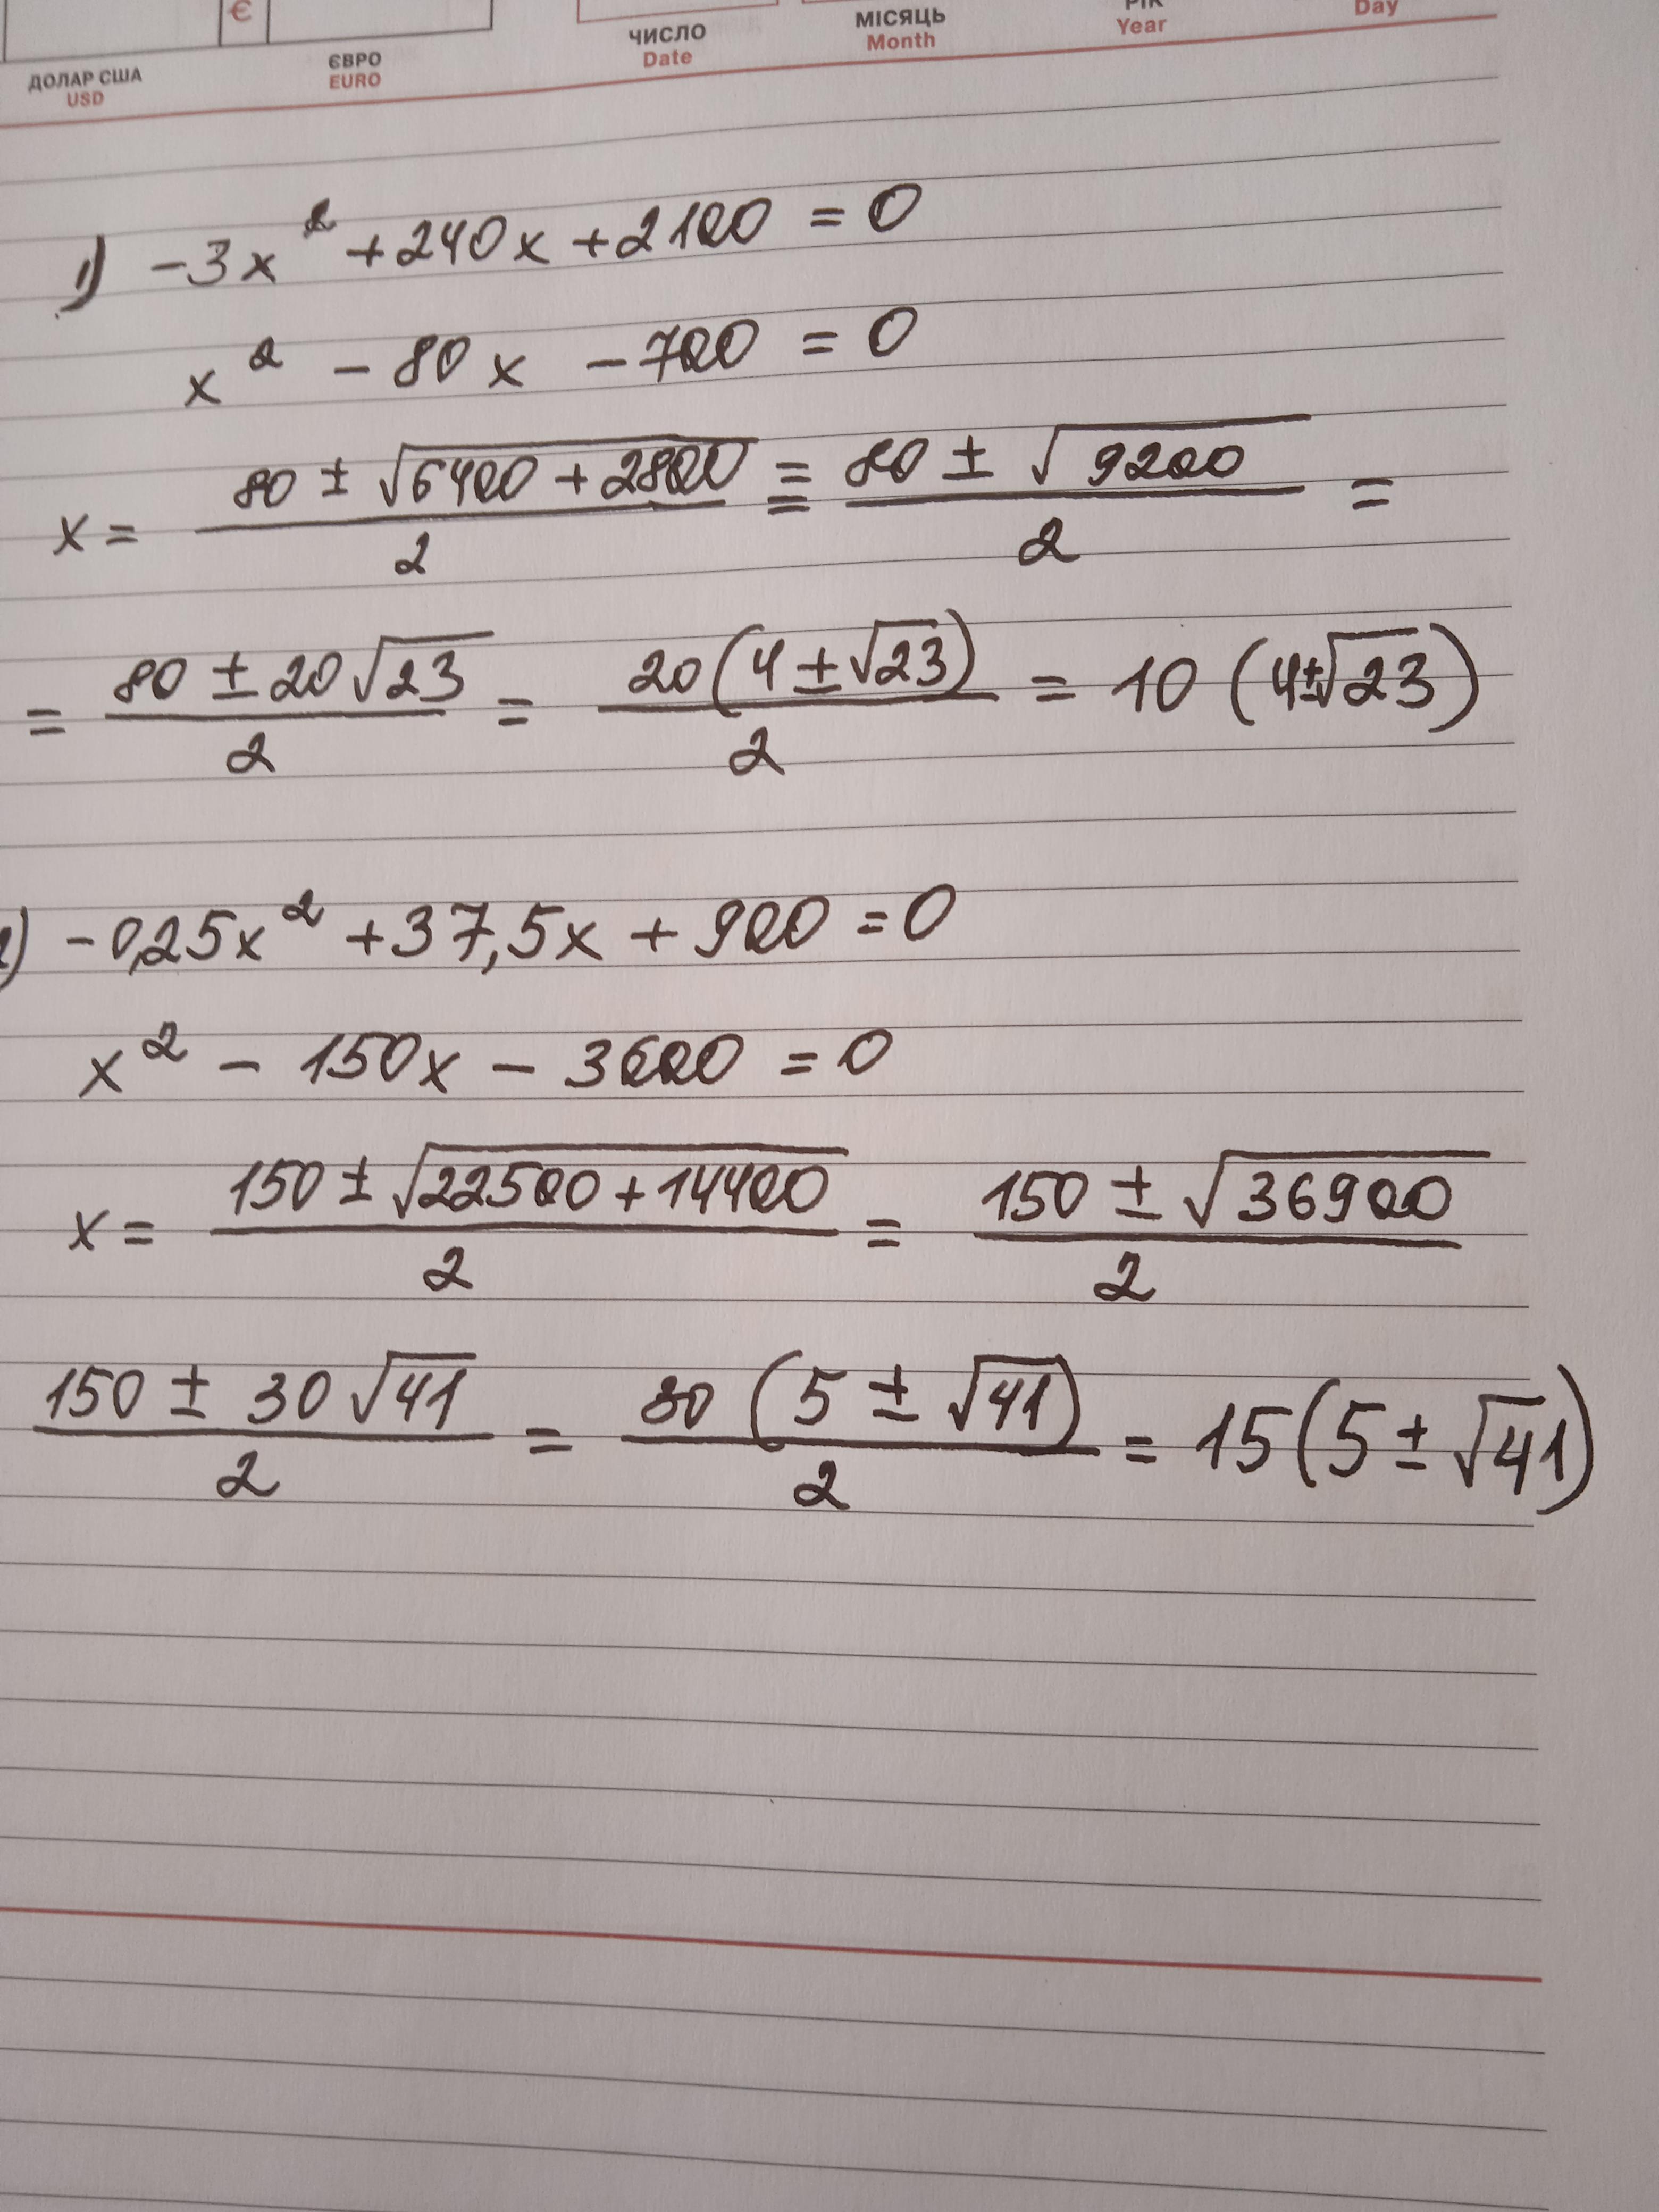 €
ДОЛАР США
USD
ЄВРО
EURO
ЧИСЛО
Date
МІСЯЦЬ
Month
РІК
Year
Day
1) -3x² + 240x + 2100 = 0
x² - 80x - 700 = 0
x = (80 ± √(6400 + 2800))/2 = (80 ± √9200)/2 =
= (80 ± 20√23)/2 = 20(4 ± √23)/2 = 10 (4±√23)
2) -0,25x² + 37,5x + 900 = 0
x² - 150x - 3600 = 0
x = (150 ± √(22500 + 14400))/2 = (150 ± √36900)/2
(150 ± 30√41)/2 = 30(5 ± √41)/2 = 15(5 ± √41)